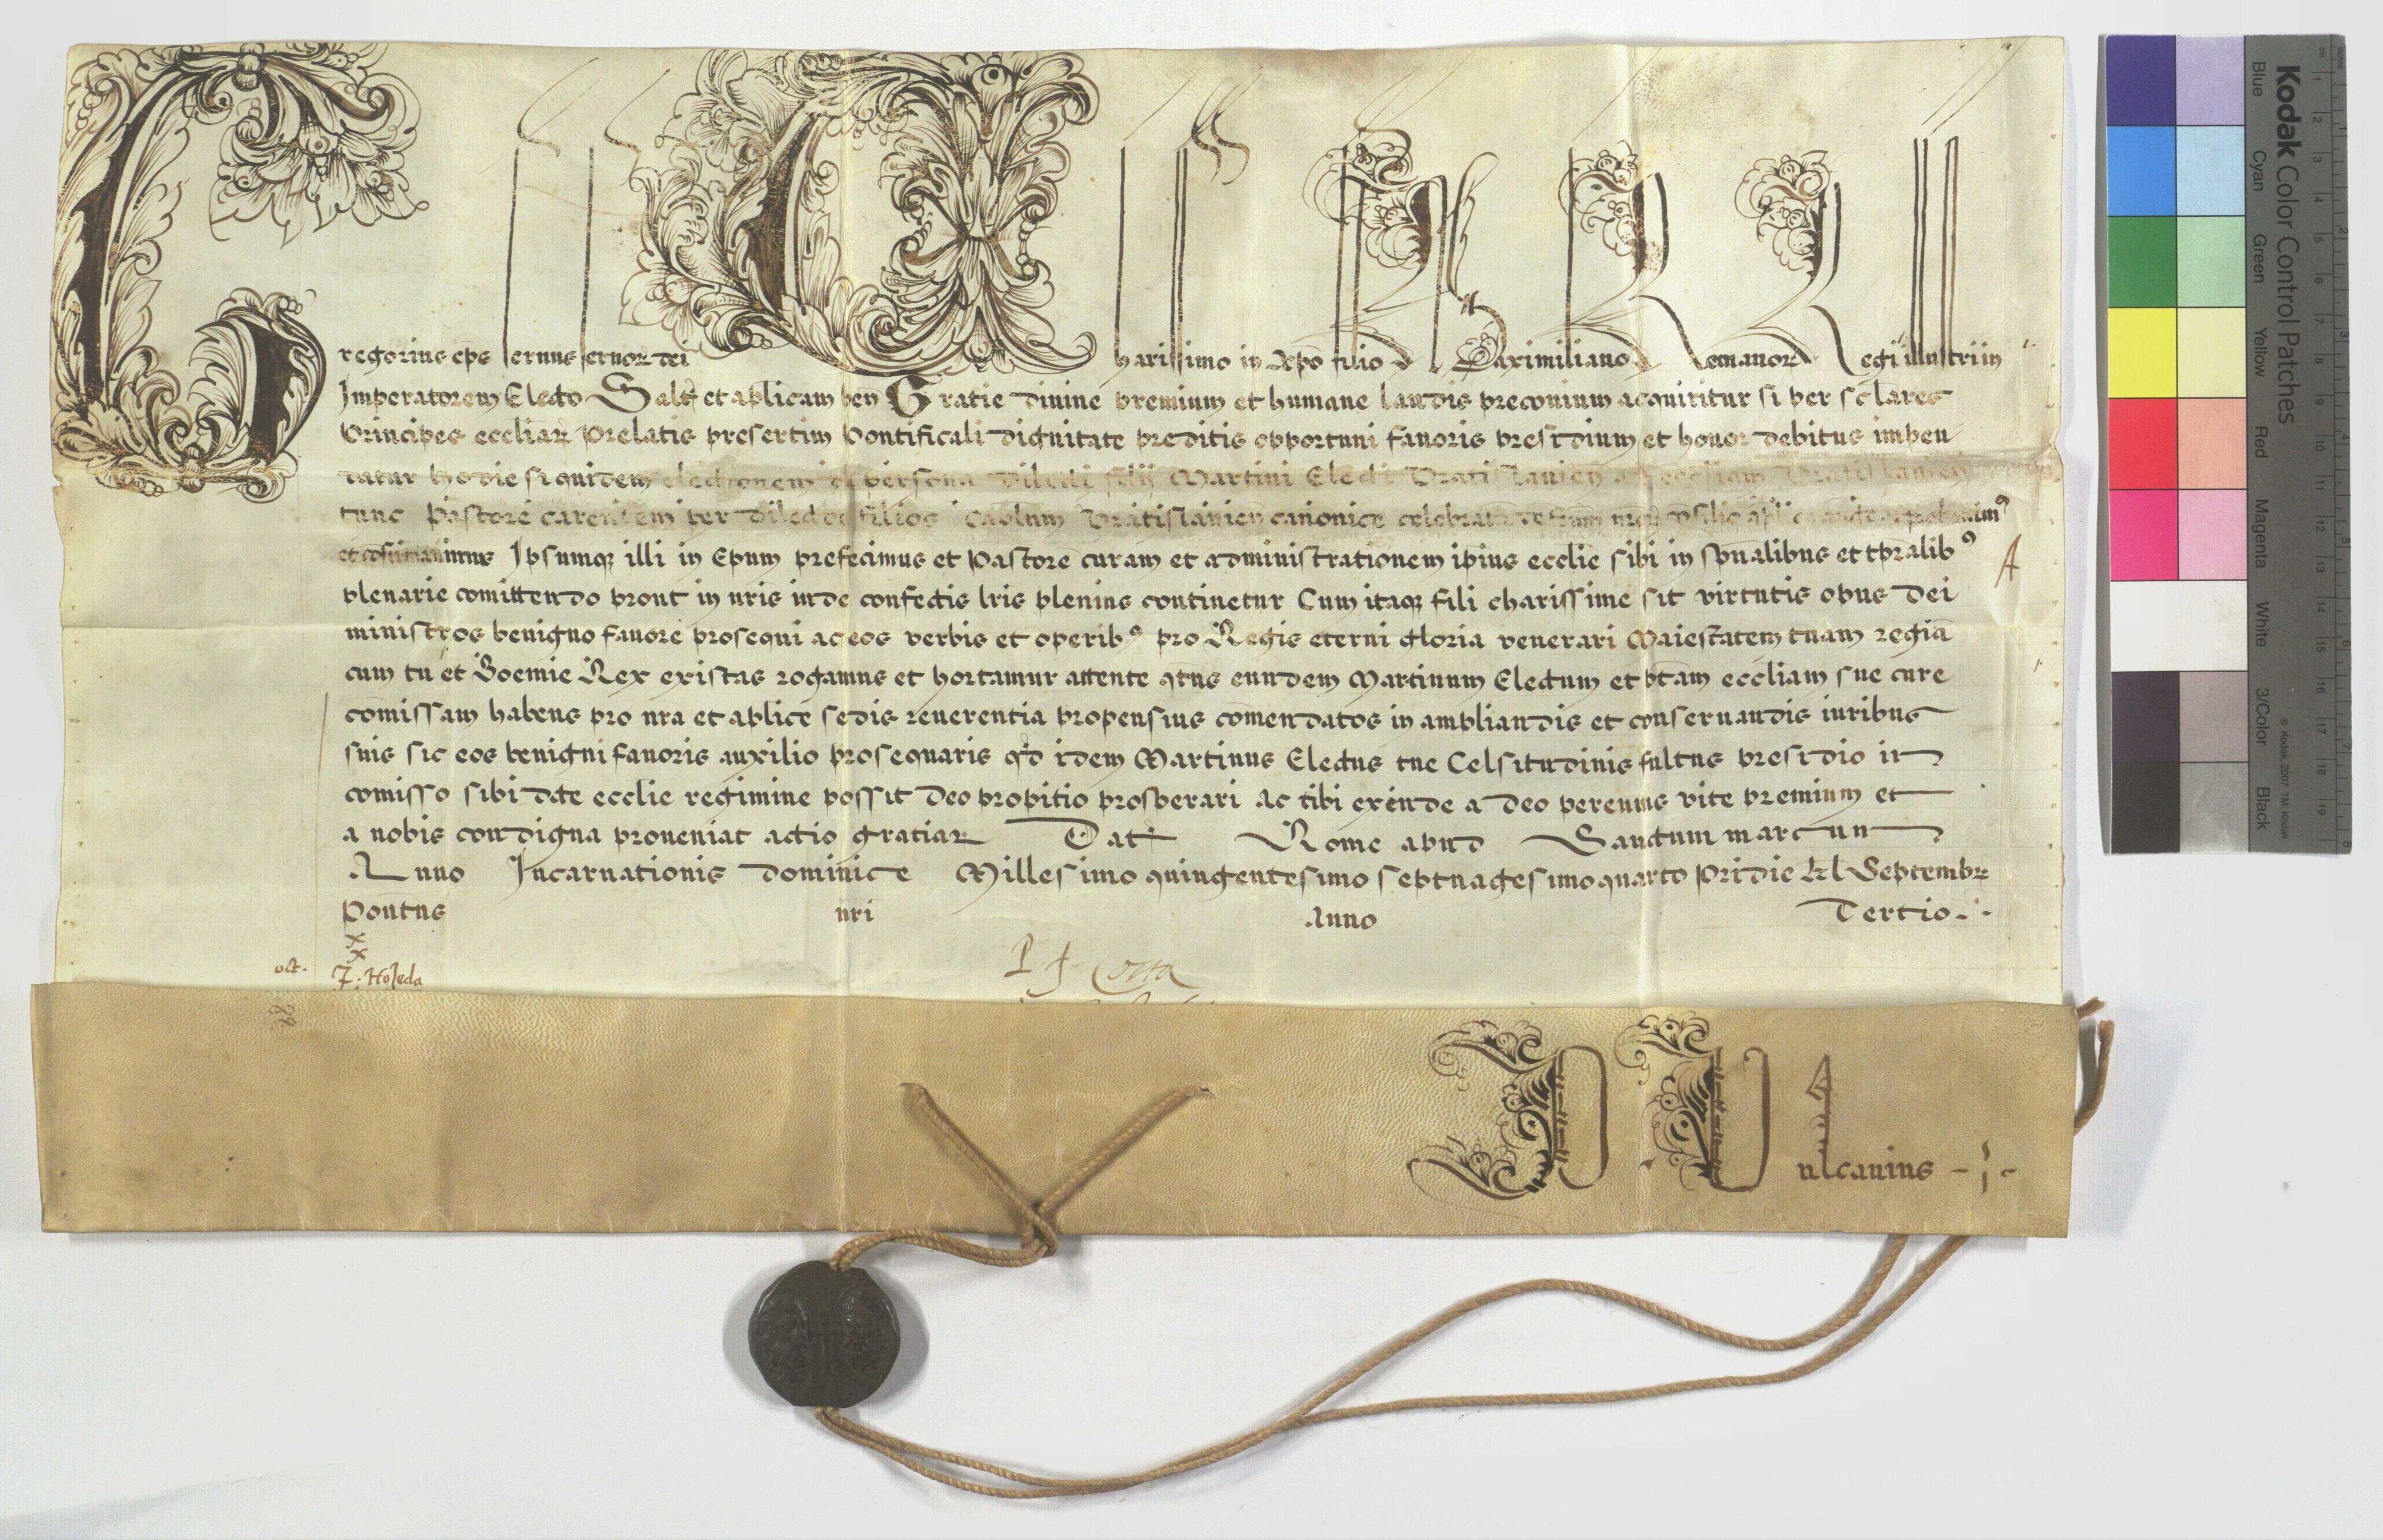 Gregorius eps servus servor dei Charissimo in Xpo filio Maximiliano Romanor Regi illustri in
Imperatorem Electo Salt et aplicam ben Gratie divine premium et humane laudis preconium acquiritur si per seculares
Principes eccliar Prelatis presertim Pontificali dignitate preditis opportuni favoris presidium et honor debitus impen
datur hodie siquidem electionem de persona dilecti filij Martini Electi Vratislavien ad eccliam Vratislavien
tunc Pastore carentem per dilectos filios Caplum Vratislavien canonice celebratam de frum nror consilio aplica
et confirmavimus Ipsumq illi in Epum prefecimus et Pastore curam et administrationem ipius ecclie sibi in spualibus et tpralib9
plenarie comittendo prout in nris inde confectis lris plenius continetur Cum itaq fili charissime sit virtutis opus Dei
ministros benigno favore prosequi ac eos verbis et operib9 pro Regis eterni gloria venerari Maiestatem tuam regia
cum tu et Boemie Rex existas rogamus et hortamur attente qtus eundem Martinum Electum et ptam eccliam sue cure
comissam habens pro nra et aplice sedis reverentia propensius comendatos in ampliandis et conservandis iuribus
suis sic eos benigni favoris auxilio prosequaris qd idem Martinus Electus tue Celsitudinis fultus presidio in
comisso sibi dcte ecclie regimine possit Deo propitio prosperari ac tibi exinde a Deo perennis vite premium et
a nobis condigna proveniat actio gratiar Dat Rome apud Sanctum marcum
Anno Incarnationis dominice Millesimo quingentesimo septuagesimoquarto Pridie kl Septembr
Pontus nri Anno Tertio
A
x
x
oct.
J. Hojeda
Vulcanius
Kodak Color Control Patches
Blue Cyan Green Yellow Red Magenta White 3/Color Black
© Kodak, 2007 TM: Kodak